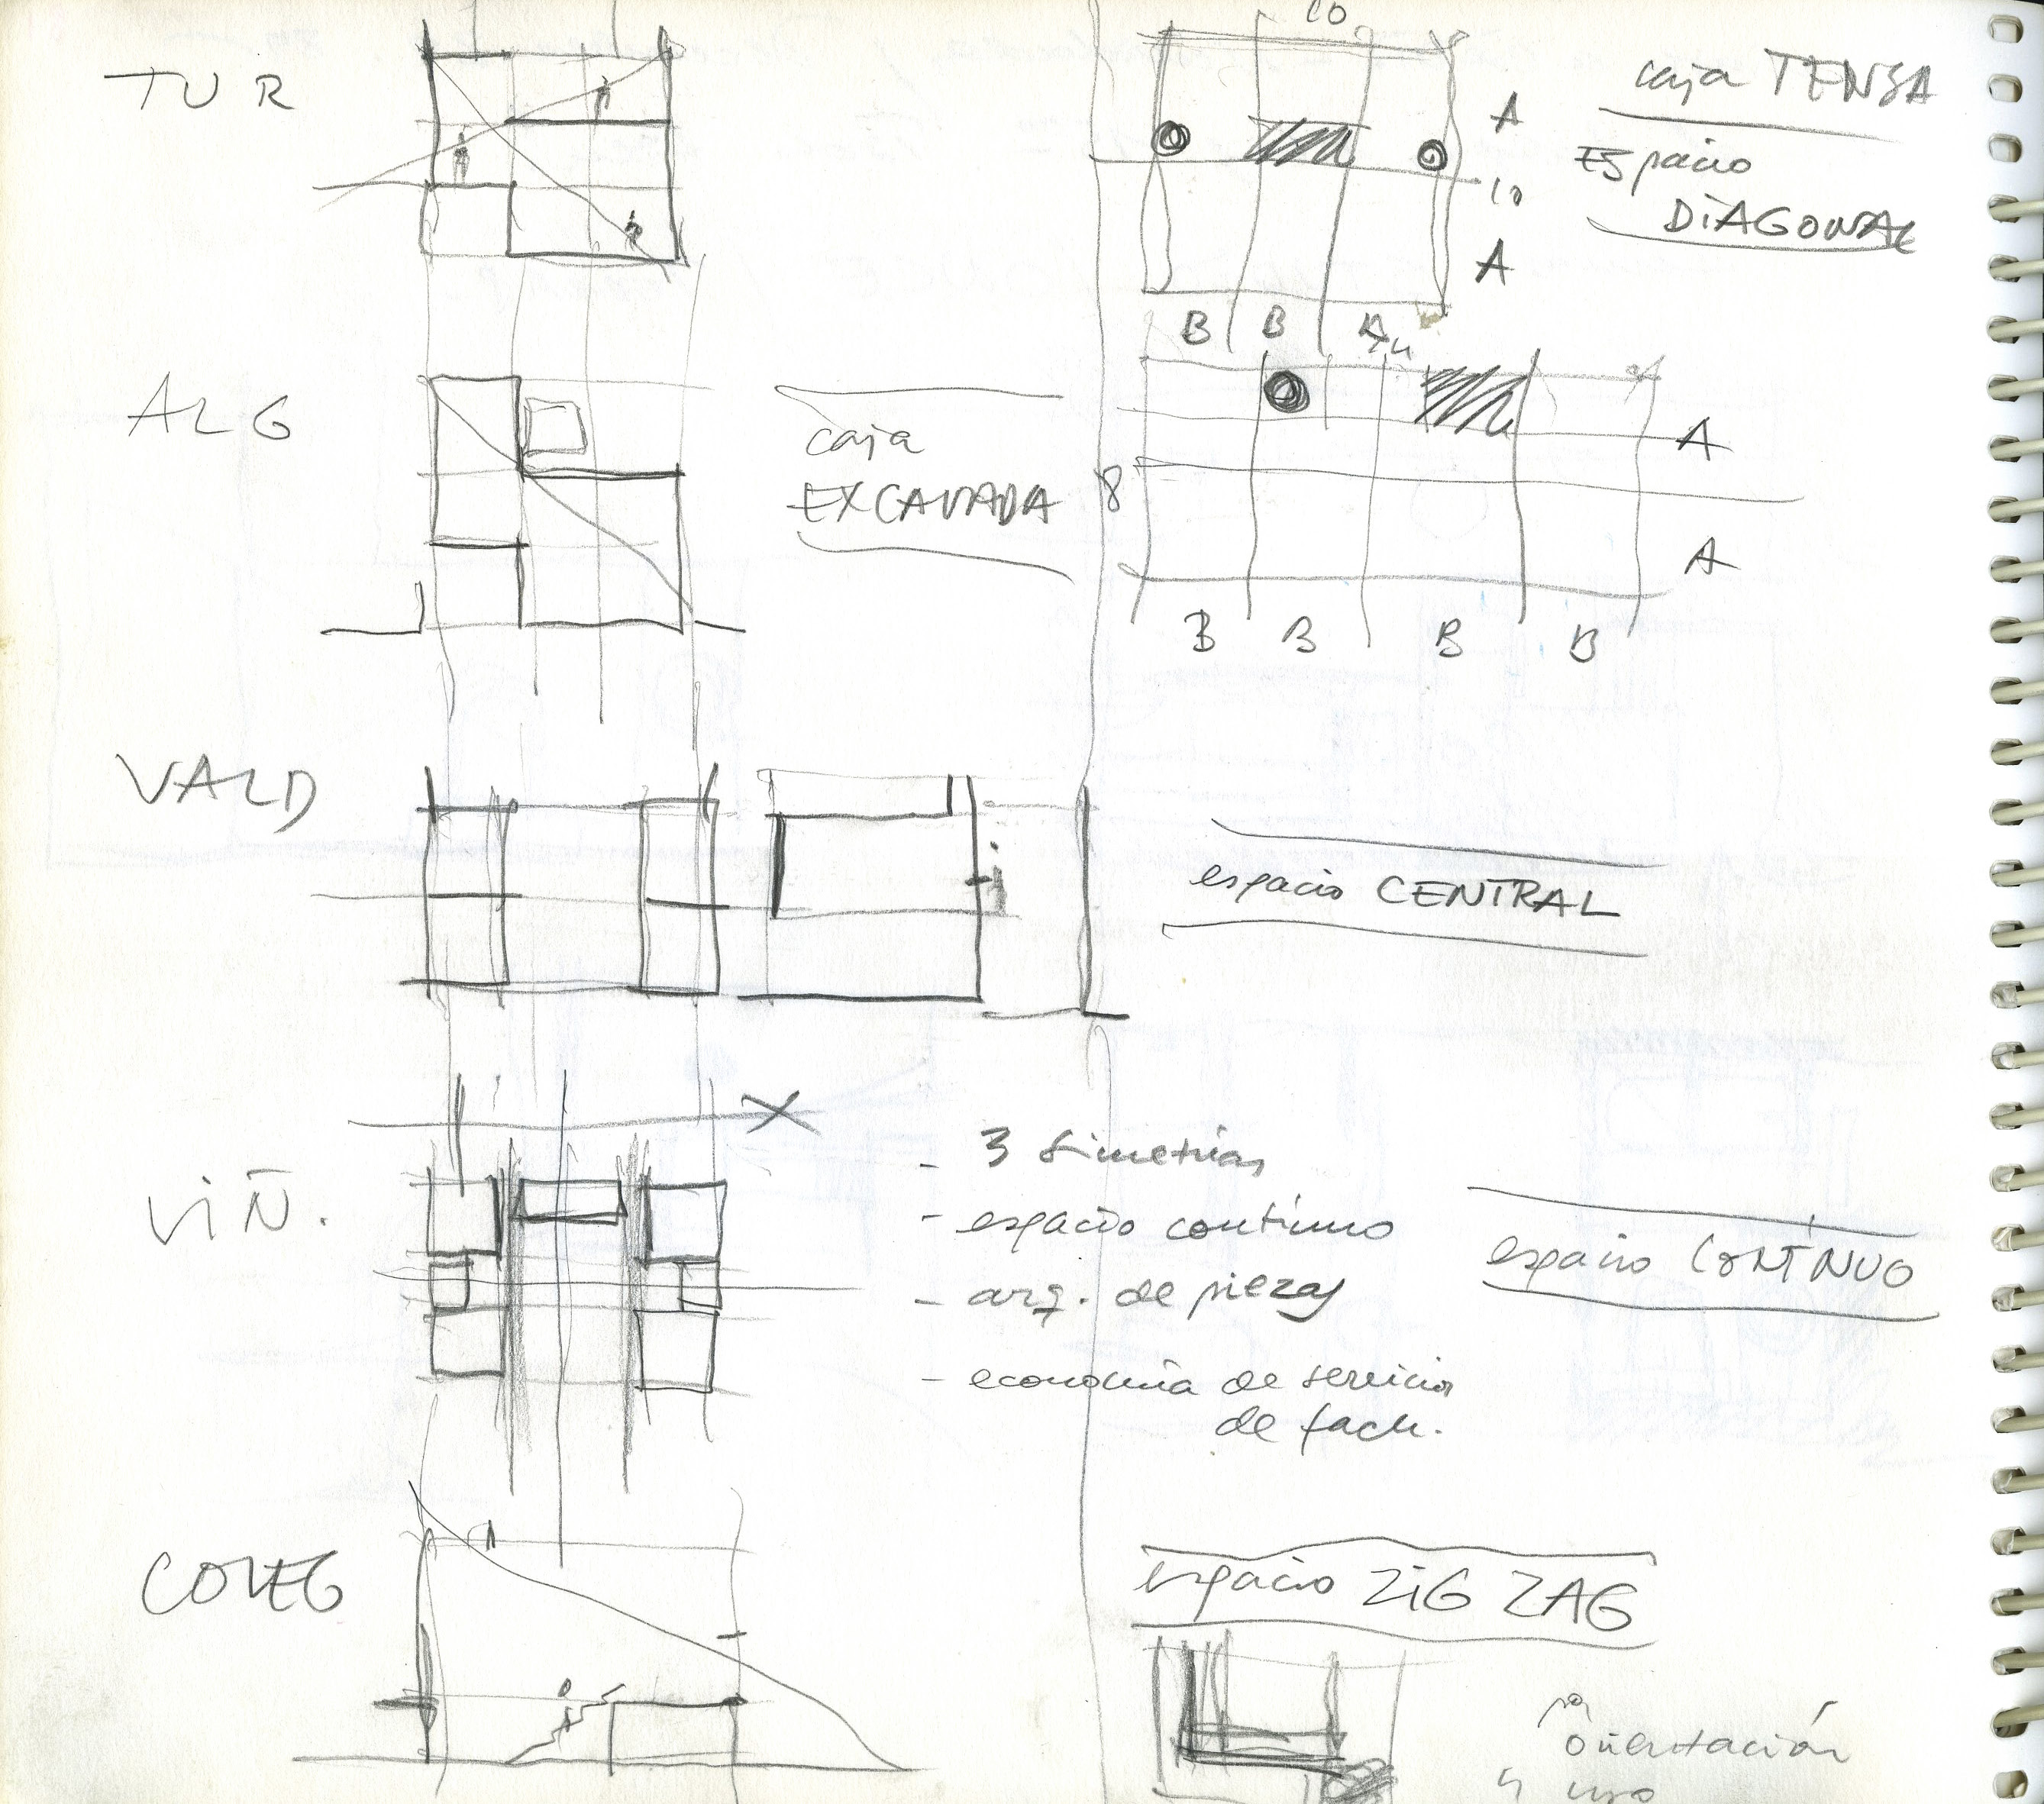 TUR
10
A
10
A
B B A
caja TENSA
Espacio
DIAGONAL
ALG
caja
EXCAVADA
8
A
A
B B B B
VALD
espacio CENTRAL
X
VIÑ.
- 3 simetrías
- espacio contínuo
- arq. de piezas
- economía de servicios
de fach.
espacio CONTÍNUO
COLEG
espacio ZIG ZAG
orientación
y uso